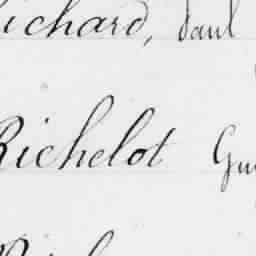 Richard, Paul
Richelot